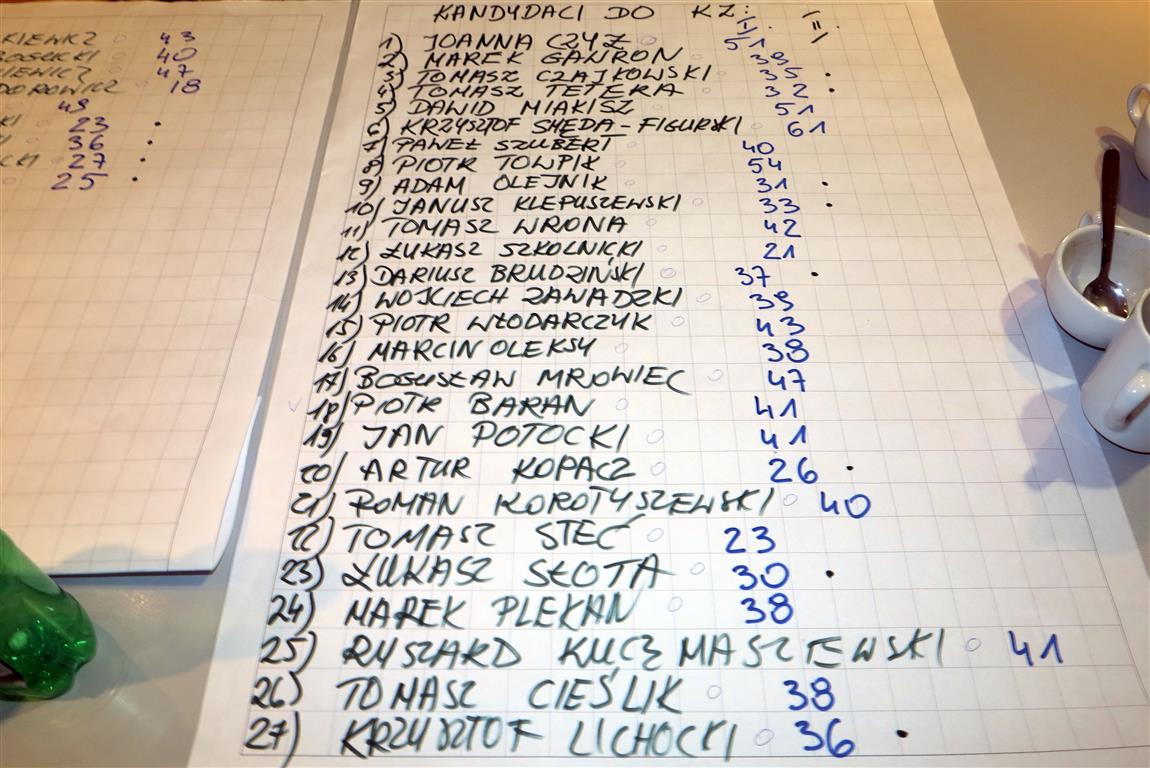 KIEWICZ 43
BOGUCKI 40
KIEWICZ 47
DOROWICZ 18
49
KI 23 .
36 .
CKI 27 .
25 .
KANDYDACI DO KZ: I II
1) JOANNA CZYŻ 51
2) MAREK GAWRON 39
3) TOMASZ CZAJKOWSKI 35 .
4) TOMASZ TETERA 32 .
5) DAWID MIAKISZ 51
6) KRZYSZTOF SMĘDA-FIGURSKI 61
7) PAWEŁ SZUBERT 40
8) PIOTR TOWPIK 54
9) ADAM OLEJNIK 31 .
10) JANUSZ KLEPUSZEWSKI 33 .
11) TOMASZ WRONA 42
12) ŁUKASZ SZKOLNICKI 21
13) DARIUSZ BRUDZIŃSKI 37 .
14) WOJCIECH ZAWADZKI 39
15) PIOTR WŁODARCZYK 43
16) MARCIN OLEKSY 38
17) BOGUSŁAW MROWIEC 47
18) PIOTR BARAN 41
19) JAN POTOCKI 41
20) ARTUR KOPACZ 26 .
21) ROMAN KOROTYSZEWSKI 40
22) TOMASZ STEĆ 23
23) ŁUKASZ SŁOTA 30 .
24) MAREK PLEKAN 38
25) RYSZARD KUCZMASZEWSKI 41
26) TOMASZ CIEŚLIK 38
27) KRZYSZTOF LICHOCKI 36 .